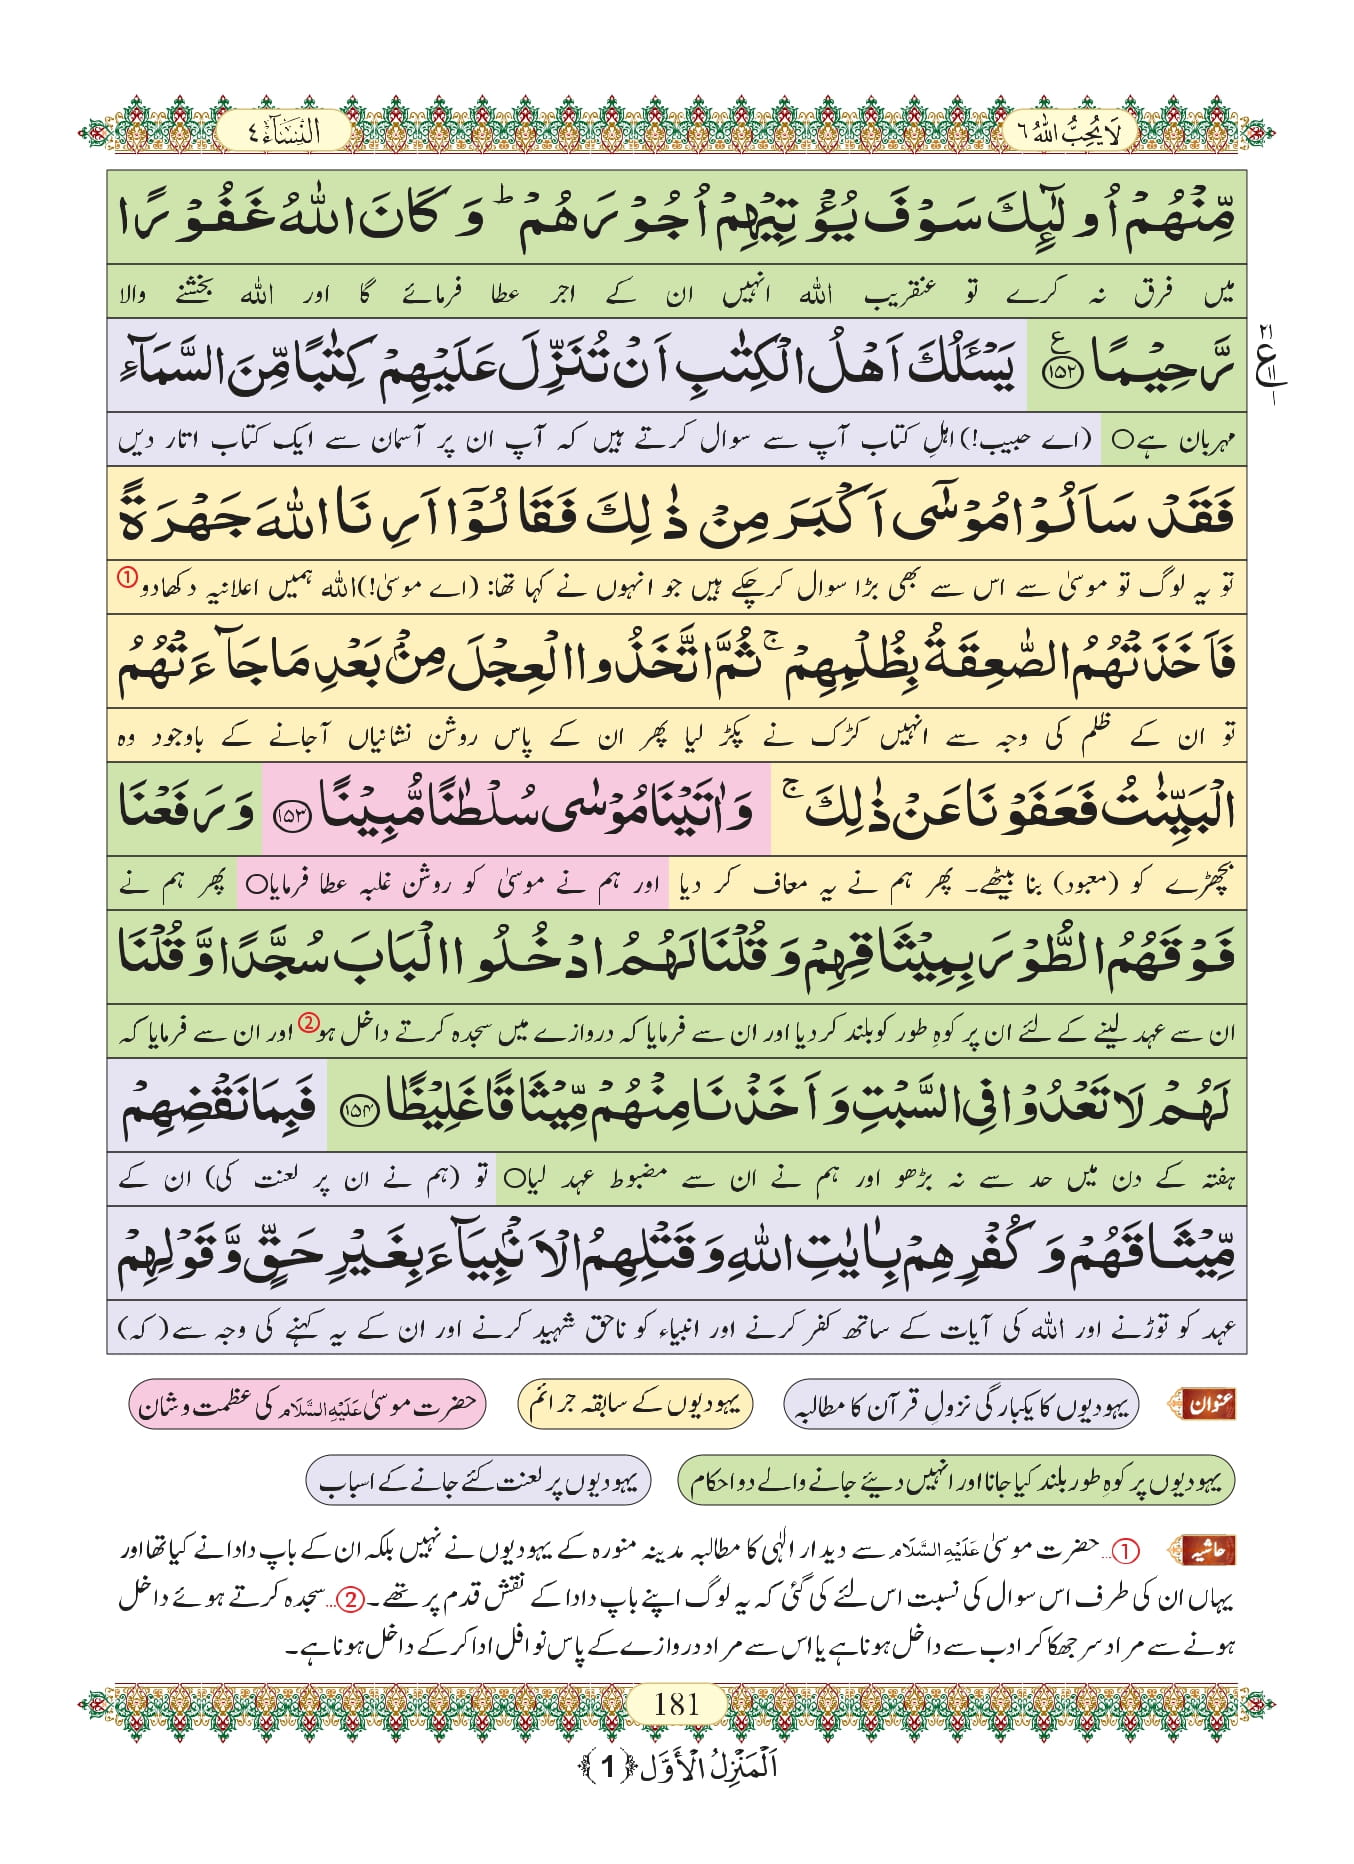 لَا يُحِبُّ اللّٰهُ ٦
النِّسَآء ٤
مِّنْهُمْ اُولٰٓىِٕكَ سَوْفَ يُؤْتِيْهِمْ اُجُوْرَهُمْ ؕ وَ كَانَ اللّٰهُ غَفُوْرًا
میں فرق نہ کرے تو عنقریب اللہ انہیں ان کے اجر عطا فرمائے گا اور اللہ بخشنے والا
رَّحِيْمًا ۧ۝۱۵۲ يَسْـَٔلُكَ اَهْلُ الْكِتٰبِ اَنْ تُنَزِّلَ عَلَيْهِمْ كِتٰبًا مِّنَ السَّمَآءِ
۲۱
ع
۱۱
۱
مہربان ہے○ (اے حبیب!) اہلِ کتاب آپ سے سوال کرتے ہیں کہ آپ ان پر آسمان سے ایک کتاب اتار دیں
فَقَدْ سَاَلُوْا مُوْسٰۤى اَكْبَرَ مِنْ ذٰلِكَ فَقَالُوْۤا اَرِنَا اللّٰهَ جَهْرَةً
تو یہ لوگ تو موسیٰ سے اس سے بھی بڑا سوال کرچکے ہیں جو انہوں نے کہا تھا: (اے موسیٰ!) اللہ ہمیں اعلانیہ دکھادو①
فَاَخَذَتْهُمُ الصّٰعِقَةُ بِظُلْمِهِمْ ۚ ثُمَّ اتَّخَذُوا الْعِجْلَ مِنْۢ بَعْدِ مَا جَآءَتْهُمُ
تو ان کے ظلم کی وجہ سے انہیں کڑک نے پکڑ لیا پھر ان کے پاس روشن نشانیاں آجانے کے باوجود وہ
الْبَيِّنٰتُ فَعَفَوْنَا عَنْ ذٰلِكَ ۚ وَ اٰتَيْنَا مُوْسٰى سُلْطٰنًا مُّبِيْنًا ۝۱۵۳ وَ رَفَعْنَا
بچھڑے کو (معبود) بنا بیٹھے۔ پھر ہم نے یہ معاف کر دیا اور ہم نے موسیٰ کو روشن غلبہ عطا فرمایا○ پھر ہم نے
فَوْقَهُمُ الطُّوْرَ بِمِيْثَاقِهِمْ وَ قُلْنَا لَهُمُ ادْخُلُوا الْبَابَ سُجَّدًا وَّ قُلْنَا
ان سے عہد لینے کے لئے ان پر کوہِ طور کو بلند کر دیا اور ان سے فرمایا کہ دروازے میں سجدہ کرتے داخل ہو② اور ان سے فرمایا کہ
لَهُمْ لَا تَعْدُوْا فِي السَّبْتِ وَ اَخَذْنَا مِنْهُمْ مِّيْثَاقًا غَلِيْظًا ۝۱۵۴ فَبِمَا نَقْضِهِمْ
ہفتہ کے دن میں حد سے نہ بڑھو اور ہم نے ان سے مضبوط عہد لیا○ تو (ہم نے ان پر لعنت کی) ان کے
مِّيْثَاقَهُمْ وَ كُفْرِهِمْ بِاٰيٰتِ اللّٰهِ وَ قَتْلِهِمُ الْاَنْۢبِيَآءَ بِغَيْرِ حَقٍّ وَّ قَوْلِهِمْ
عہد کو توڑنے اور اللہ کی آیات کے ساتھ کفر کرنے اور انبیاء کو ناحق شہید کرنے اور ان کے یہ کہنے کی وجہ سے (کہ)
عنوان یہودیوں کا یکبارگی نزولِ قرآن کا مطالبہ یہودیوں کے سابقہ جرائم حضرت موسیٰ عَلَیْہِ السَّلَام کی عظمت و شان
یہودیوں پر کوہِ طور بلند کیا جانا اور انہیں دیئے جانے والے دو احکام یہودیوں پر لعنت کئے جانے کے اسباب
حاشیہ ①...حضرت موسیٰ عَلَیْہِ السَّلَام سے دیدار الٰہی کا مطالبہ مدینہ منورہ کے یہودیوں نے نہیں بلکہ ان کے باپ دادا نے کیا تھا اور
یہاں ان کی طرف اس سوال کی نسبت اس لئے کی گئی کہ یہ لوگ اپنے باپ دادا کے نقش قدم پر تھے۔ ②...سجدہ کرتے ہوئے داخل
ہونے سے مراد سر جھکا کر ادب سے داخل ہونا ہے یا اس سے مراد دروازے کے پاس نوافل ادا کر کے داخل ہونا ہے۔
181
اَلْمَنْزِلُ الْأَوَّل ﴿1﴾